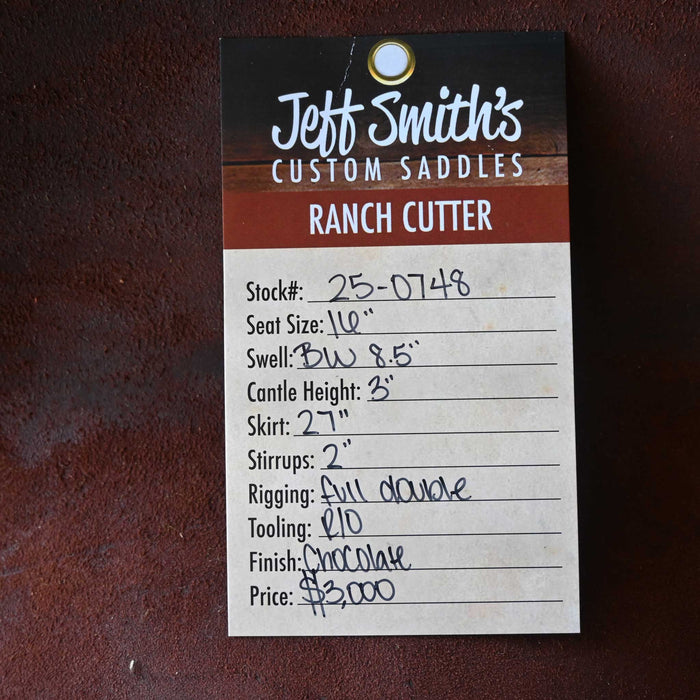 Jeff Smith's
CUSTOM SADDLES
RANCH CUTTER
Stock#: 25-0748
Seat Size: 16"
Swell: BW 8.5"
Cantle Height: 3"
Skirt: 27"
Stirrups: 2"
Rigging: full double
Tooling: R/O
Finish: Chocolate
Price: $3,000